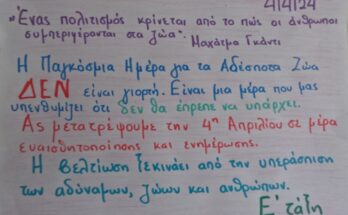 4/4/24
«Ένας πολιτισμός κρίνεται από το πώς οι άνθρωποι
συμπεριφέρονται στα ζώα". Μαχάτμα Γκάντι
Η Παγκόσμια Ημέρα για τα Αδέσποτα Ζώα
ΔΕΝ είναι γιορτή. Είναι μια μέρα που μας
υπενθυμίζει ότι δεν θα έπρεπε να υπάρχει.
Ας μετατρέψουμε την 4η Απριλίου σε μέρα
ευαισθητοποίησης και ενημέρωσης.
Η βελτίωση ξεκινάει από την υπεράσπιση
των αδύναμων, ζώων και ανθρώπων.
Ε' τάξη